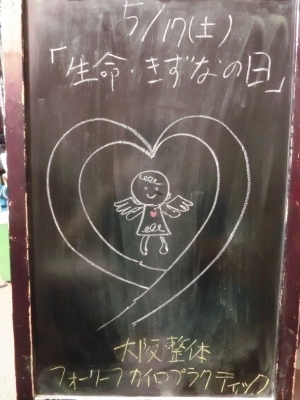 5/17(土)
「生命・きずなの日」
大阪整体
フォーリーフカイロプラクティック